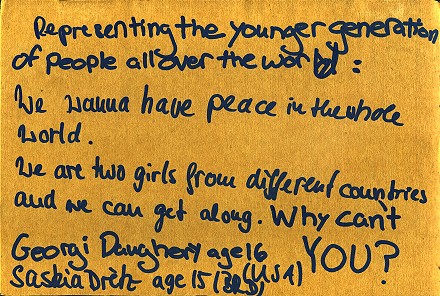 Representing the younger generation
of people all over the world :
We wanna have peace in the whole
world.
We are two girls from different countries
and we can get along. Why can't
YOU?
Georgi Daughery age 16
(USA)
Saskia age 15 (BRD)